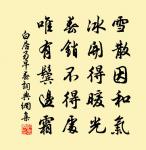 雪散因和氣
冰開得暖光
春銷不得處
唯有鬢邊霜
白居易早春詞典網集